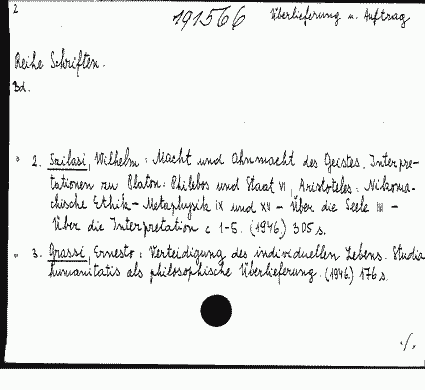 2
191566 Überlieferung u. Auftrag
Reihe Schriften.
Bd.
" 2. Szilasi, Wilhelm: Macht und Ohnmacht des Geistes. Interpre-
tationen zu Platon: Philebos und Staat VI, Aristoteles: Nikoma-
chische Ethik - Metaphysik IX und XII - Über die Seele III -
Über die Interpretation c 1-5. (1946) 305 s.
" 3. Grassi, Ernesto: Verteidigung des individuellen Lebens. Studia
humanitatis als philosophische Überlieferung. (1946) 176 s.
./.